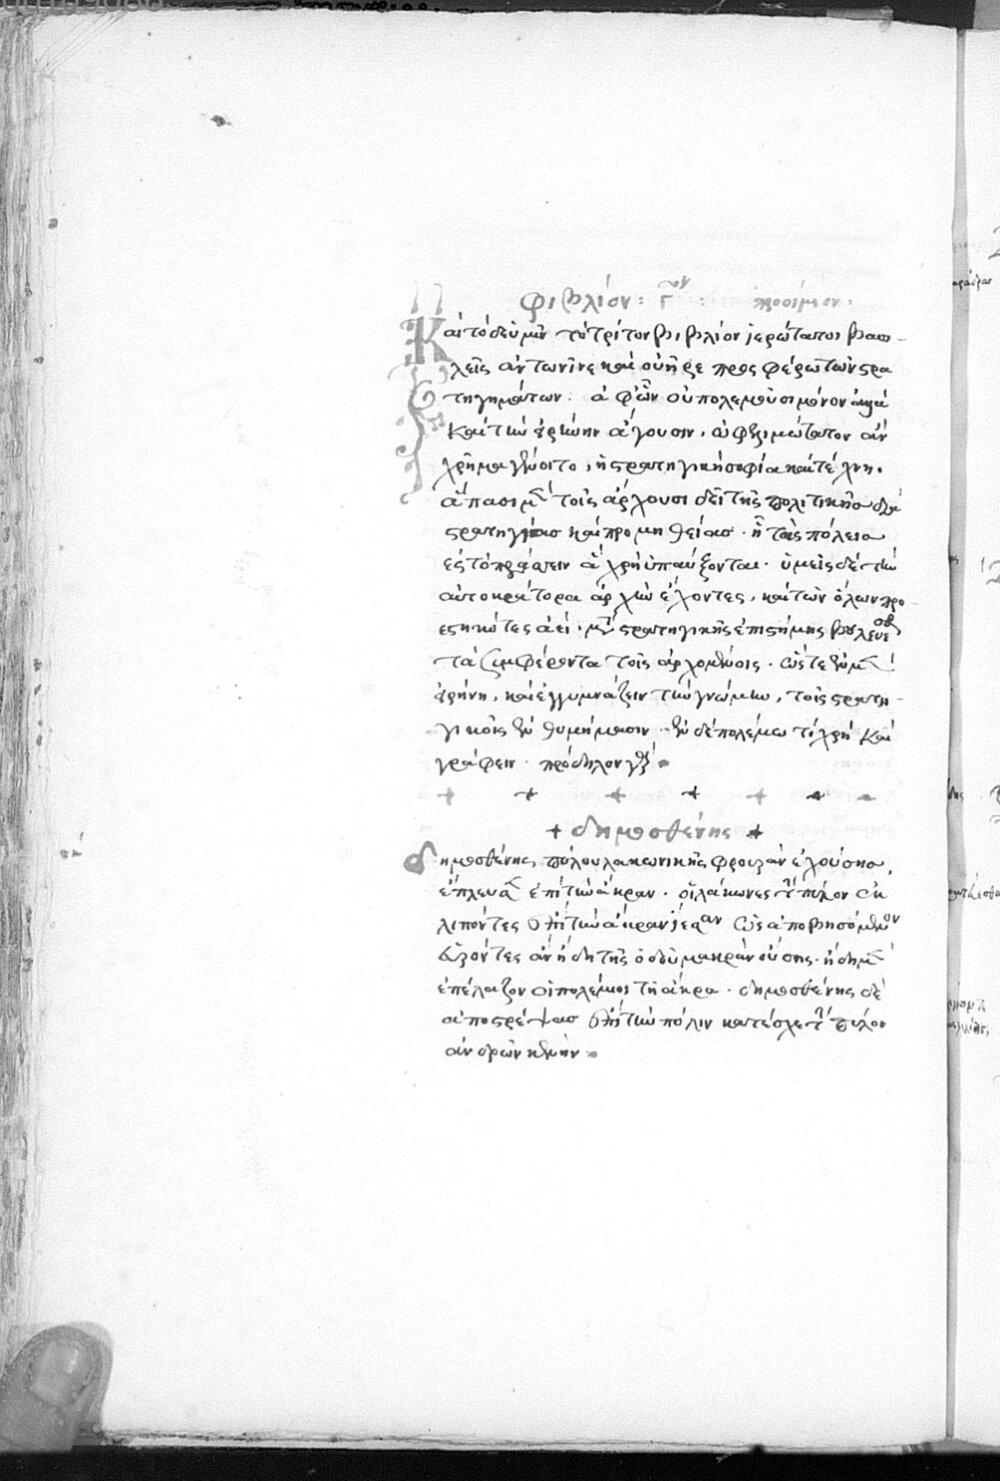 βιβλίον: Γον: προοίμιον:
Καὶ τόδε ὑμῖν τὸ τρίτον βιβλίον ἱερώτατοι βασι-
λεῖς ἀντωνῖνε καὶ οὐῆρε προσφέρω τῶν στρα
τηγημάτων. ἀφ' ὧν οὐ πολεμοῦσι μόνον ἀλλὰ
καὶ τὴν εἰρήνην ἄγουσιν, ὠφελιμώτατον ἂν
χρῆμα γένοιτο, ἡ στρατηγικὴ σοφία καὶ τέχνη.
ἅπασι μὲν τοῖς ἄρχουσι δεῖ τῆς πολιτικῆς
στρατηγίας καὶ προμηθείας. ἢ τὰς πόλεις
ἐς τὸ πράττειν ἃ χρὴ ὑπαύξονται. ὑμεῖς δὲ τὴν
αὐτοκράτορα ἀρχὴν ἔχοντες, καὶ τῶν ὅλων προ-
εστηκότες ἀεὶ. μετὰ στρατηγικῆς ἐπιστήμης βουλεύεσθε
τὰ συμφέροντα τοῖς ἀρχομένοις. ὥστε ἐν μὲν
εἰρήνη, καὶ ἐγγυμνάζειν τὴν γνώμην, τοῖς στρατη-
γικοῖς ἐνθυμήμασιν. ἐν δὲ πολέμω τί χρὴ καὶ
γράφειν. πρόδηλον γάρ.
+ δημοσθένης +
δημοσθένης, πύλου λακωνικῆς φρουρὰν ἐχούσης,
ἔπλευσεν ἐπὶ τὴν ἄκραν. οἱ λάκωνες τὴν πύλον ἐκ
λιπόντες ἐπὶ τὴν ἄκραν ἵεσαν ὡς ἀποβησόμενον
δ' ἤδη τῆς ὁδοῦ μακρὰν οὔσης. ἤδη μὲν
ἐπέλαζον οἱ πολέμιοι τῆ ἄκρα. δημοσθένης δὲ
ἀποστρέψας ἐπὶ τὴν πόλιν κατέσχε τὴν πύλον
ἀνδρῶν κενήν.